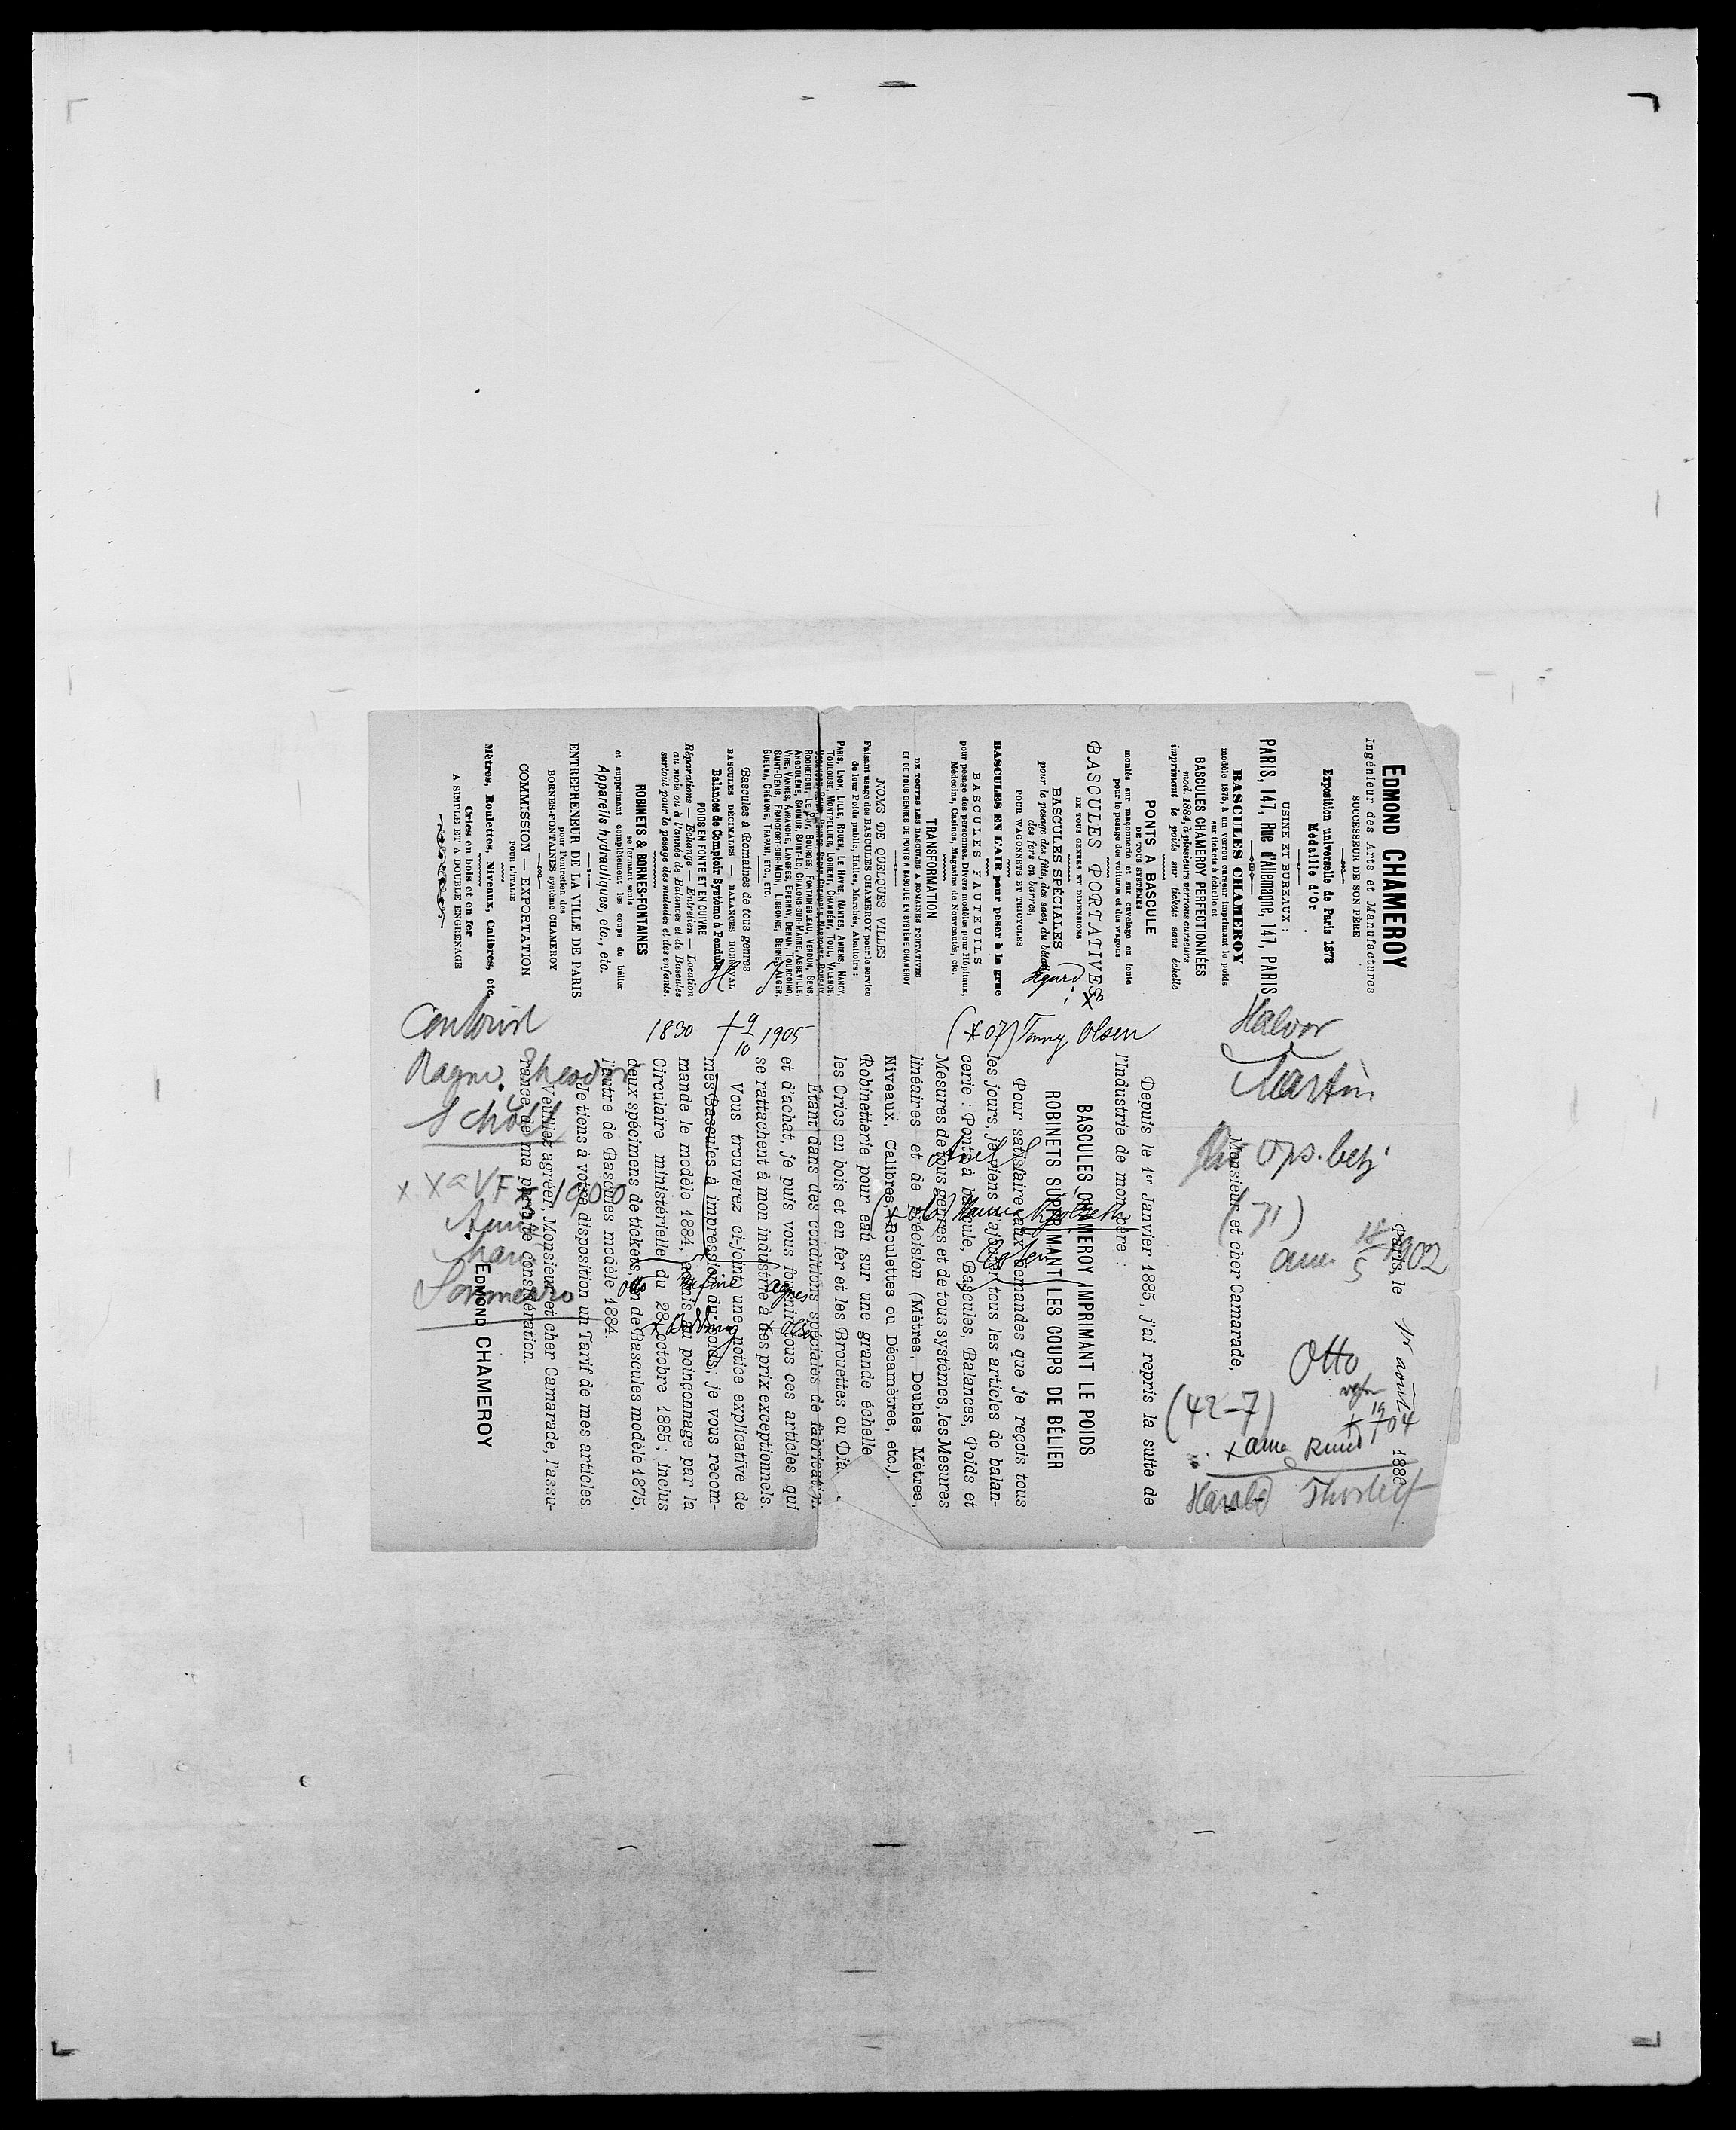 EDMOND CHAMEROY
Ingénieur des Arts et Manufactures
SUCCESSEUR DE SON PÈRE
Exposition universelle de Paris 1878
Médaille d'Or
USINE ET BUREAUX :
PARIS, 147, Rue d'Allemagne, 147, PARIS
BASCULES CHAMEROY
modèle 1875, à un verrou curseur imprimant le poids
sur tickets à échelle et
BASCULES CHAMEROY PERFECTIONNÉES
mod. 1884, à plusieurs verrous curseurs
imprimant le poids sur tickets sans échelle
PONTS A BASCULE
DE TOUS SYSTÈMES
montés sur maçonnerie et sur cuvelage en fonte
pour le pesage des voitures et des wagons
BASCULES PORTATIVES
DE TOUS GENRES ET DIMENSIONS
BASCULES SPÉCIALES
pour le pesage des fûts, des sacs, du bétail
des fers en barres,
POUR WAGONNETS ET TRICYCLES
BASCULES EN L'AIR pour peser à la grue
BASCULES FAUTEUILS
pour pesage des personnes. Divers modèles pour Hôpitaux,
Médecins, Casinos, Magasins de Nouveautés, etc.
TRANSFORMATION
DE TOUTES LES BASCULES A ROMAINES PORTATIVES
ET DE TOUS GENRES DE PONTS A BASCULE EN SYSTÈME CHAMEROY
NOMS DE QUELQUES VILLES
Faisant usage des BASCULES CHAMEROY pour le service
de leur Poids public, Halles, Marchés, Abattoirs :
PARIS, LYON, LILLE, ROUEN, LE HAVRE, NANTES, AMIENS, NANCY,
TOULOUSE, MONTPELLIER, LORIENT, CHAMBÉRY, TOUL, VALENCE,
ROCHEFORT, LE PUY, BOURGES, FONTAINEBLEAU, VERDUN, SENS,
ANGOULÊME, SAUMUR, SAINT-LO, CHALONS-SUR-MARNE, ABBEVILLE,
VIRE, VANNES, AVRANCHE, LANGRES, EPERNAY, DENAIN, TOURCOING,
SAINT-DENIS, FRANCFORT-SUR-MEIN, LISBONNE, BERNE, ALGER,
GUELMA, CRÉMONE, TRAPANI, ETC., ETC.
Bascules à Romaines de tous genres
BASCULES DÉCIMALES — BALANCES ROBERVAL
Balances de Comptoir Système à Pendule
POIDS EN FONTE ET EN CUIVRE
Réparations — Echange — Entretien — Location
au mois ou à l'année de Balances et de Bascules
surtout pour le pesage des malades et des enfants.
ROBINETS & BORNES-FONTAINES
se fermant seuls
et supprimant complètement les coups de bélier
Appareils hydrauliques, etc., etc.
ENTREPRENEUR DE LA VILLE DE PARIS
pour l'entretien des
BORNES-FONTAINES système CHAMEROY
COMMISSION — EXPORTATION
POUR L'ITALIE
Mètres, Roulettes, Niveaux, Calibres, etc.
Crics en bois et en fer
A SIMPLE ET A DOUBLE ENGRENAGE
Paris, le 1er août 188
Monsieur et cher Camarade,
Depuis le 1er Janvier 1885, j'ai repris la suite de
l'Industrie de mon père :
BASCULES CHAMEROY IMPRIMANT LE POIDS
ROBINETS SUPPRIMANT LES COUPS DE BÉLIER
Pour satisfaire aux demandes que je reçois tous
les jours, je viens d'ajouter tous les articles de balan-
cerie : Ponts à bascule, Bascules, Balances, Poids et
Mesures de tous genres et de tous systèmes, les Mesures
linéaires et de précision (Mètres, Doubles Mètres,
Niveaux, Calibres, Roulettes ou Décamètres, etc.),
Robinetterie pour eau sur une grande échelle
les Crics en bois et en fer et les Brouettes ou Dia
Étant dans des conditions spéciales de fabrication
et d'achat, je puis vous fournir tous ces articles qui
se rattachent à mon industrie à des prix exceptionnels.
Vous trouverez ci-joint une notice explicative de
mes Bascules à impression du poids; je vous recom-
mande le modèle 1884, admis au poinçonnage par la
Circulaire ministérielle du 28 octobre 1885; inclus
deux spécimens de tickets, un de Bascules modèle 1875,
l'autre de Bascules modèle 1884.
Je tiens à votre disposition un Tarif de mes articles.
Veuillez agréer, Monsieur et cher Camarade, l'assu-
rance de ma parfaite considération.
EDMOND CHAMEROY
Halvor
Martin
ops. betj.
(71)
1902
Otto
1904
(42-7)
Harald
(* 07) Fanny Olsen
1830 † 9/10 1905
Schøtt
1900